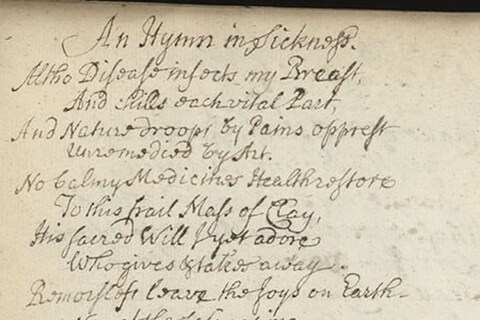 An Hymn in Sickness.
Altho Disease infects my Breast,
And chills each vital Part,
And Nature droops by Pains opprest
Unremedied by Art.
No balmy Medicines Health restore
To this frail Mass of Clay,
His sacred Will I yet adore
Who gives & takes away.
Remorsless leave the Joys on Earth